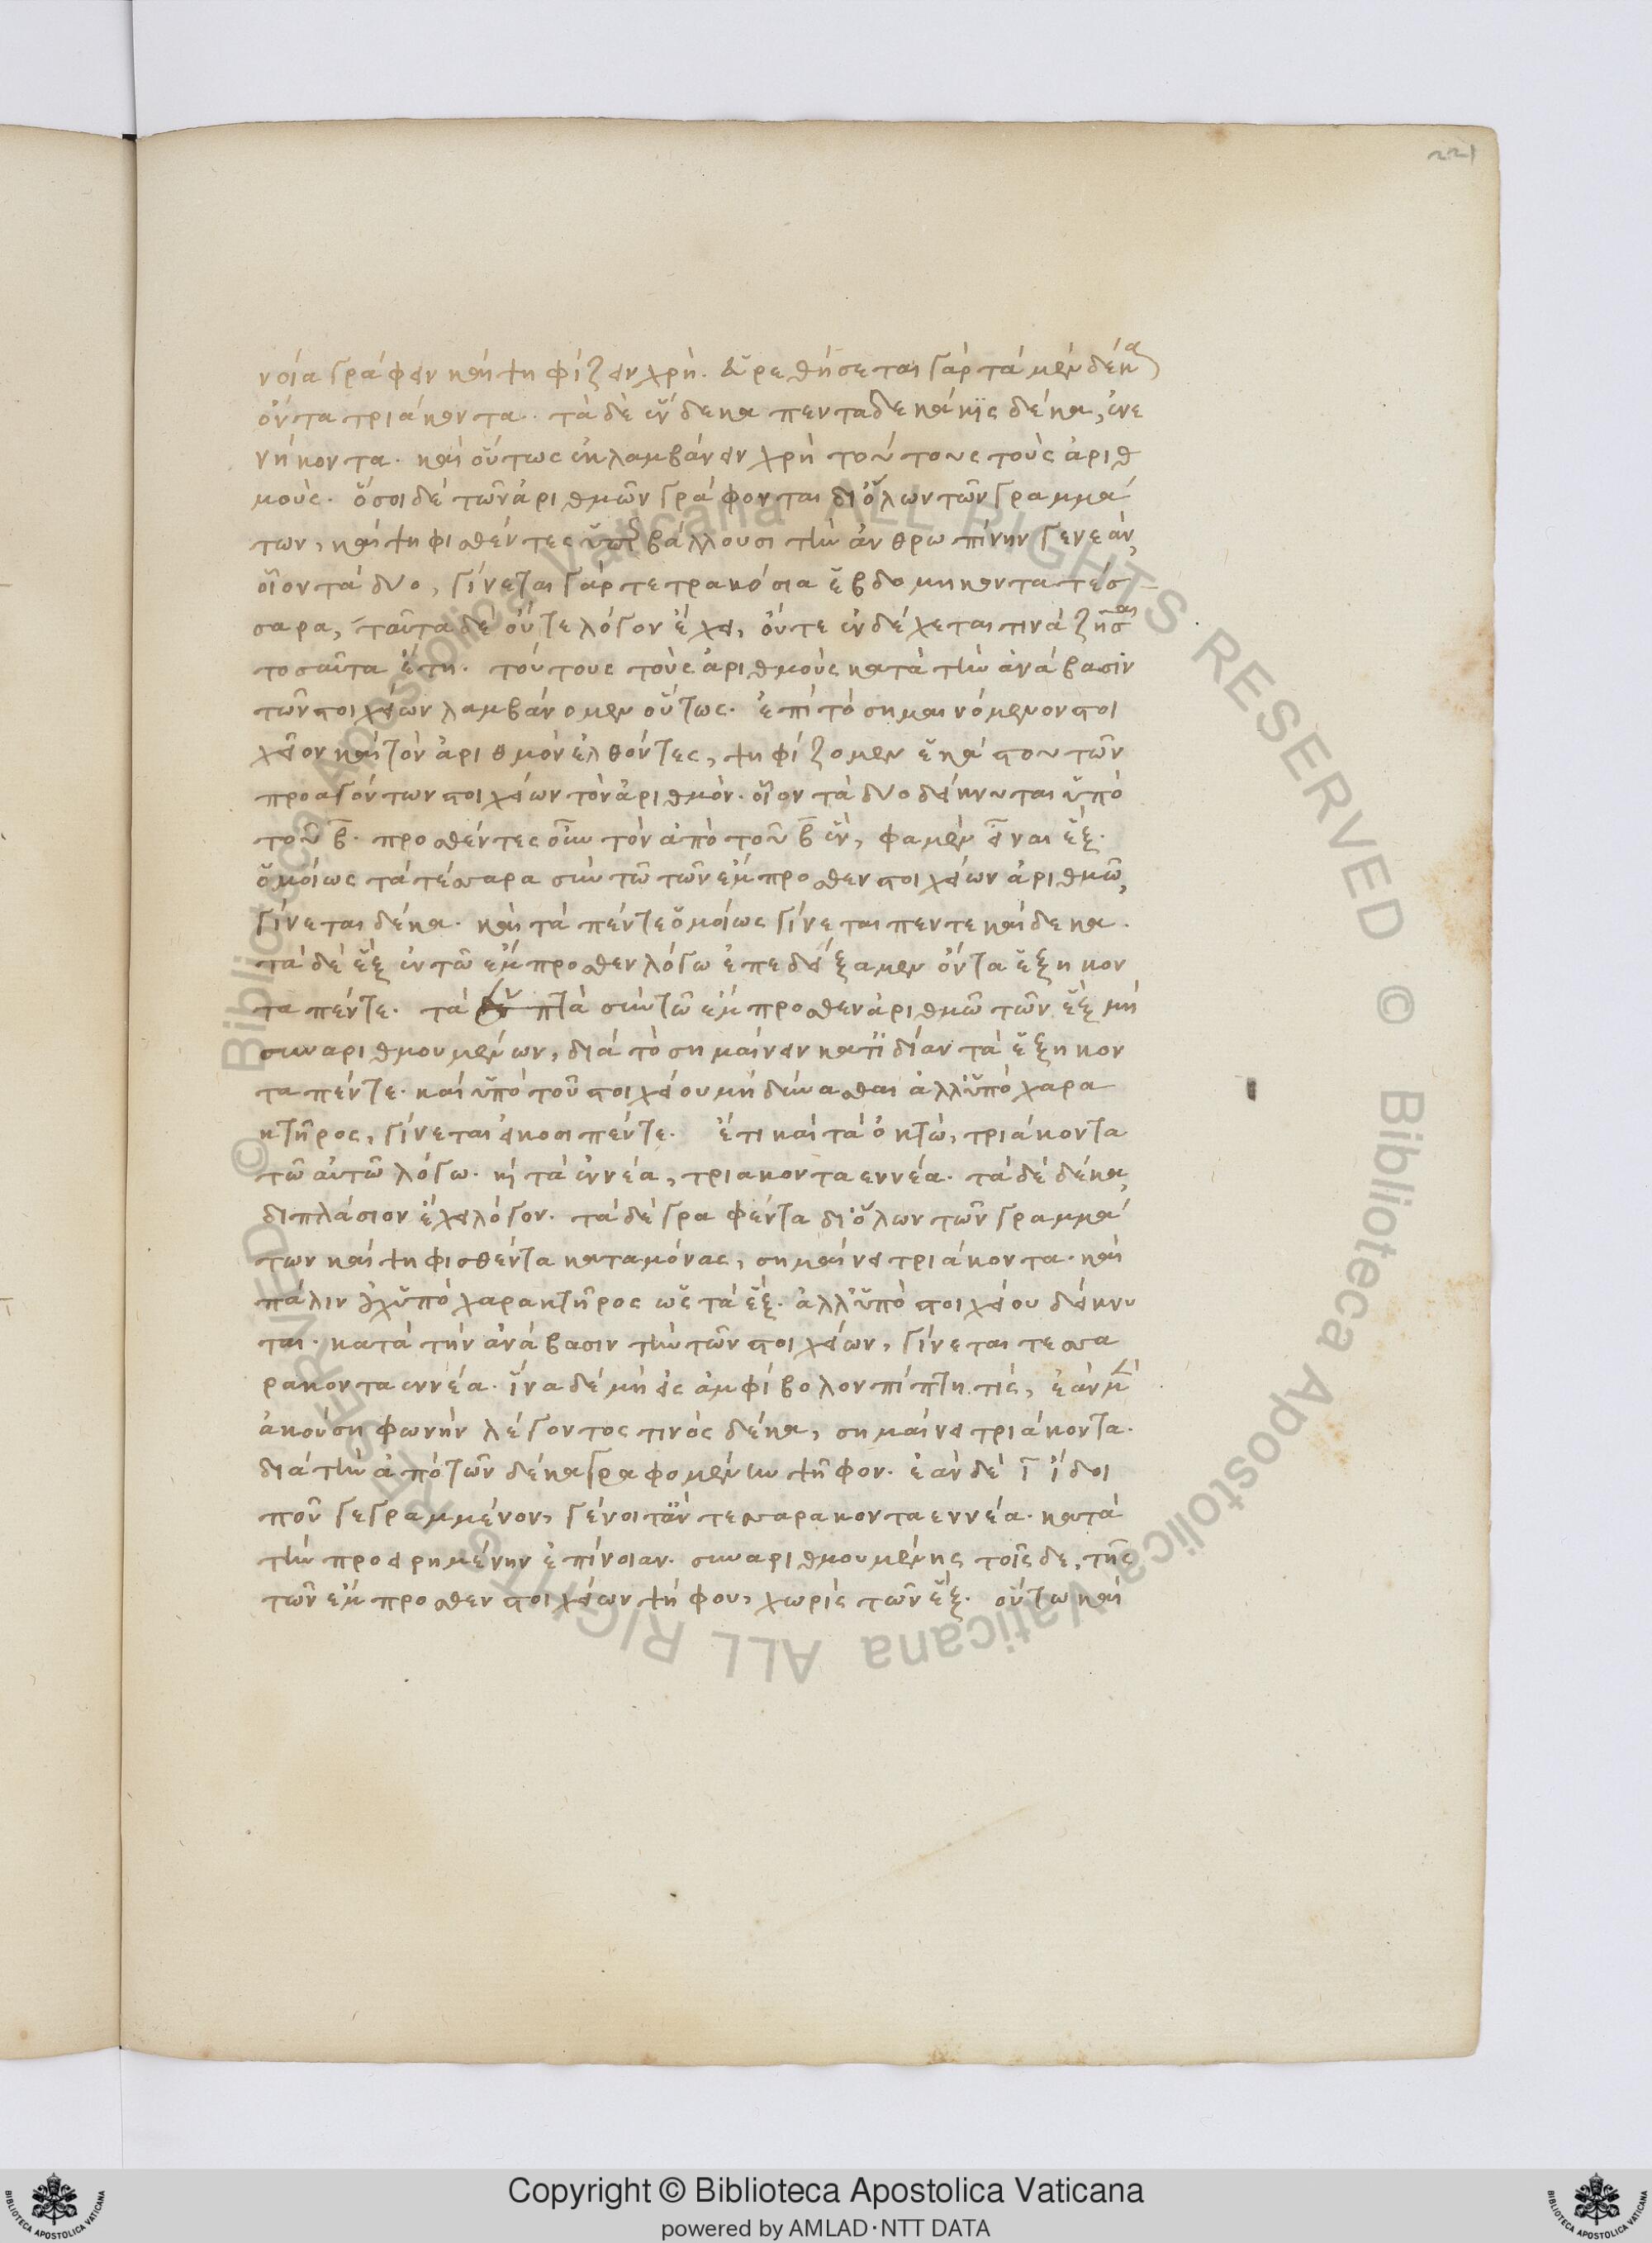 221
νοία γράφειν καὶ ψηφίζειν χρή. εὑρεθήσεται γὰρ τὰ μὲν δέκα
ὄντα τριάκοντα. τὰ δὲ ἕνδεκα πενταδεκάκις δέκα, ἐνε
νήκοντα. καὶ οὕτως ἐκλαμβάνειν χρὴ τούτους τοὺς ἀριθ
μούς. ὅσοι δὲ τῶν ἀριθμῶν γράφονται δι' ὅλων τῶν γραμμά
των, καὶ ψηφισθέντες ὑπερβάλλουσι τὴν ἀνθρωπίνην γενεάν,
οἷον τὰ δυο, γίνεται γὰρ τετρακόσια ἑβδομηκοντατέσ
σαρα, ταῦτα δὲ οὔτε λόγον ἔχει, οὔτε ἐνδέχεται τινὰ ζῆσαι
τοσαῦτα ἔτη. τούτους τοὺς ἀριθμοὺς κατὰ τὴν ἀνάβασιν
τῶν στοιχείων λαμβάνομεν οὕτως. ἐπὶ τὸ σημαινόμενον στοι
χεῖον καὶ τὸν ἀριθμὸν ἐλθόντες, ψηφίζομεν ἑκάστου τῶν
προαγόντων στοιχείων τὸν ἀριθμόν. οἷον τὰ δυο δείκνυται ὑπὸ
τοῦ β. προσθέντες οὖν τὸν ἀπὸ τοῦ β ἓν, φαμὲν εἶναι ἕξ.
ὁμοίως τὰ τέσσαρα σὺν τῶ τῶν ἔμπροσθεν στοιχείων ἀριθμῶ,
γίνεται δέκα. καὶ τὰ πέντε ὁμοίως γίνεται πεντεκαίδεκα.
τὰ δὲ ἕξ ἐν τῶ ἔμπροσθεν λόγω ἐπεδείξαμεν ὄντα ἑξηκον
τα πέντε. τὰ ἑπτὰ σὺν τῶ ἔμπροσθεν ἀριθμῶ τῶν ἕξ μὴ
συναριθμουμένων, διὰ τὸ σημαίνειν κατ' ϊδίαν τὰ ἑξηκον
τα πέντε. καὶ ὑπὸ τοῦ στοιχείου μὴ δύνασθαι ἀλλ' ὑπὸ χαρα
κτῆρος, γίνεται εἰκοσιπέντε. ἔτι καὶ τὰ ὀκτὼ, τριάκοντα
τῶ αὐτῶ λόγω. καὶ τὰ ἐννέα, τριακονταεννέα. τὰ δὲ δέκα,
διπλάσιον ἔχει λόγον. τὰ δὲ γραφέντα δι' ὅλων τῶν γραμμά
των καὶ ψηφισθέντα καταμόνας, σημαίνει τριάκοντα. καὶ
πάλιν οὐχ ὑπὸ χαρακτῆρος ὡς τὰ ἕξ. ἀλλ' ὑπὸ στοιχείου δείκνυ
ται. κατὰ τὴν ἀνάβασιν τὴν τῶν στοιχείων, γίνεται τεσσα
ρακονταεννέα. ἵνα δὲ μὴ εἰς ἀμφίβολον πίπτη τίς, ἐὰν μὲν
ἀκούση φωνὴν λέγοντος τινὸς δέκα, σημαίνει τριάκοντα.
διὰ τὴν ἀπὸ τῶν δέκα γραφομένην ψῆφον. ἐὰν δὲ ῑ ἴδοι
που γεγραμμένον, γένοιτ' ἂν τεσσαρακονταεννέα. κατὰ
τὴν προειρημένην ἐπίνοιαν. συναριθμουμένης τοῖσδε, τῆς
τῶν ἔμπροσθεν στοιχείων ψήφου, χωρὶς τῶν ἕξ. οὕτω καὶ
Copyright © Biblioteca Apostolica Vaticana
powered by AMLAD·NTT DATA
© Biblioteca Apostolica Vaticana ALL RIGHTS RESERVED © Biblioteca Apostolica Vaticana ALL RIGHTS RESERVED
BIBLIOTECA APOSTOLICA VATICANA
BIBLIOTECA APOSTOLICA VATICANA